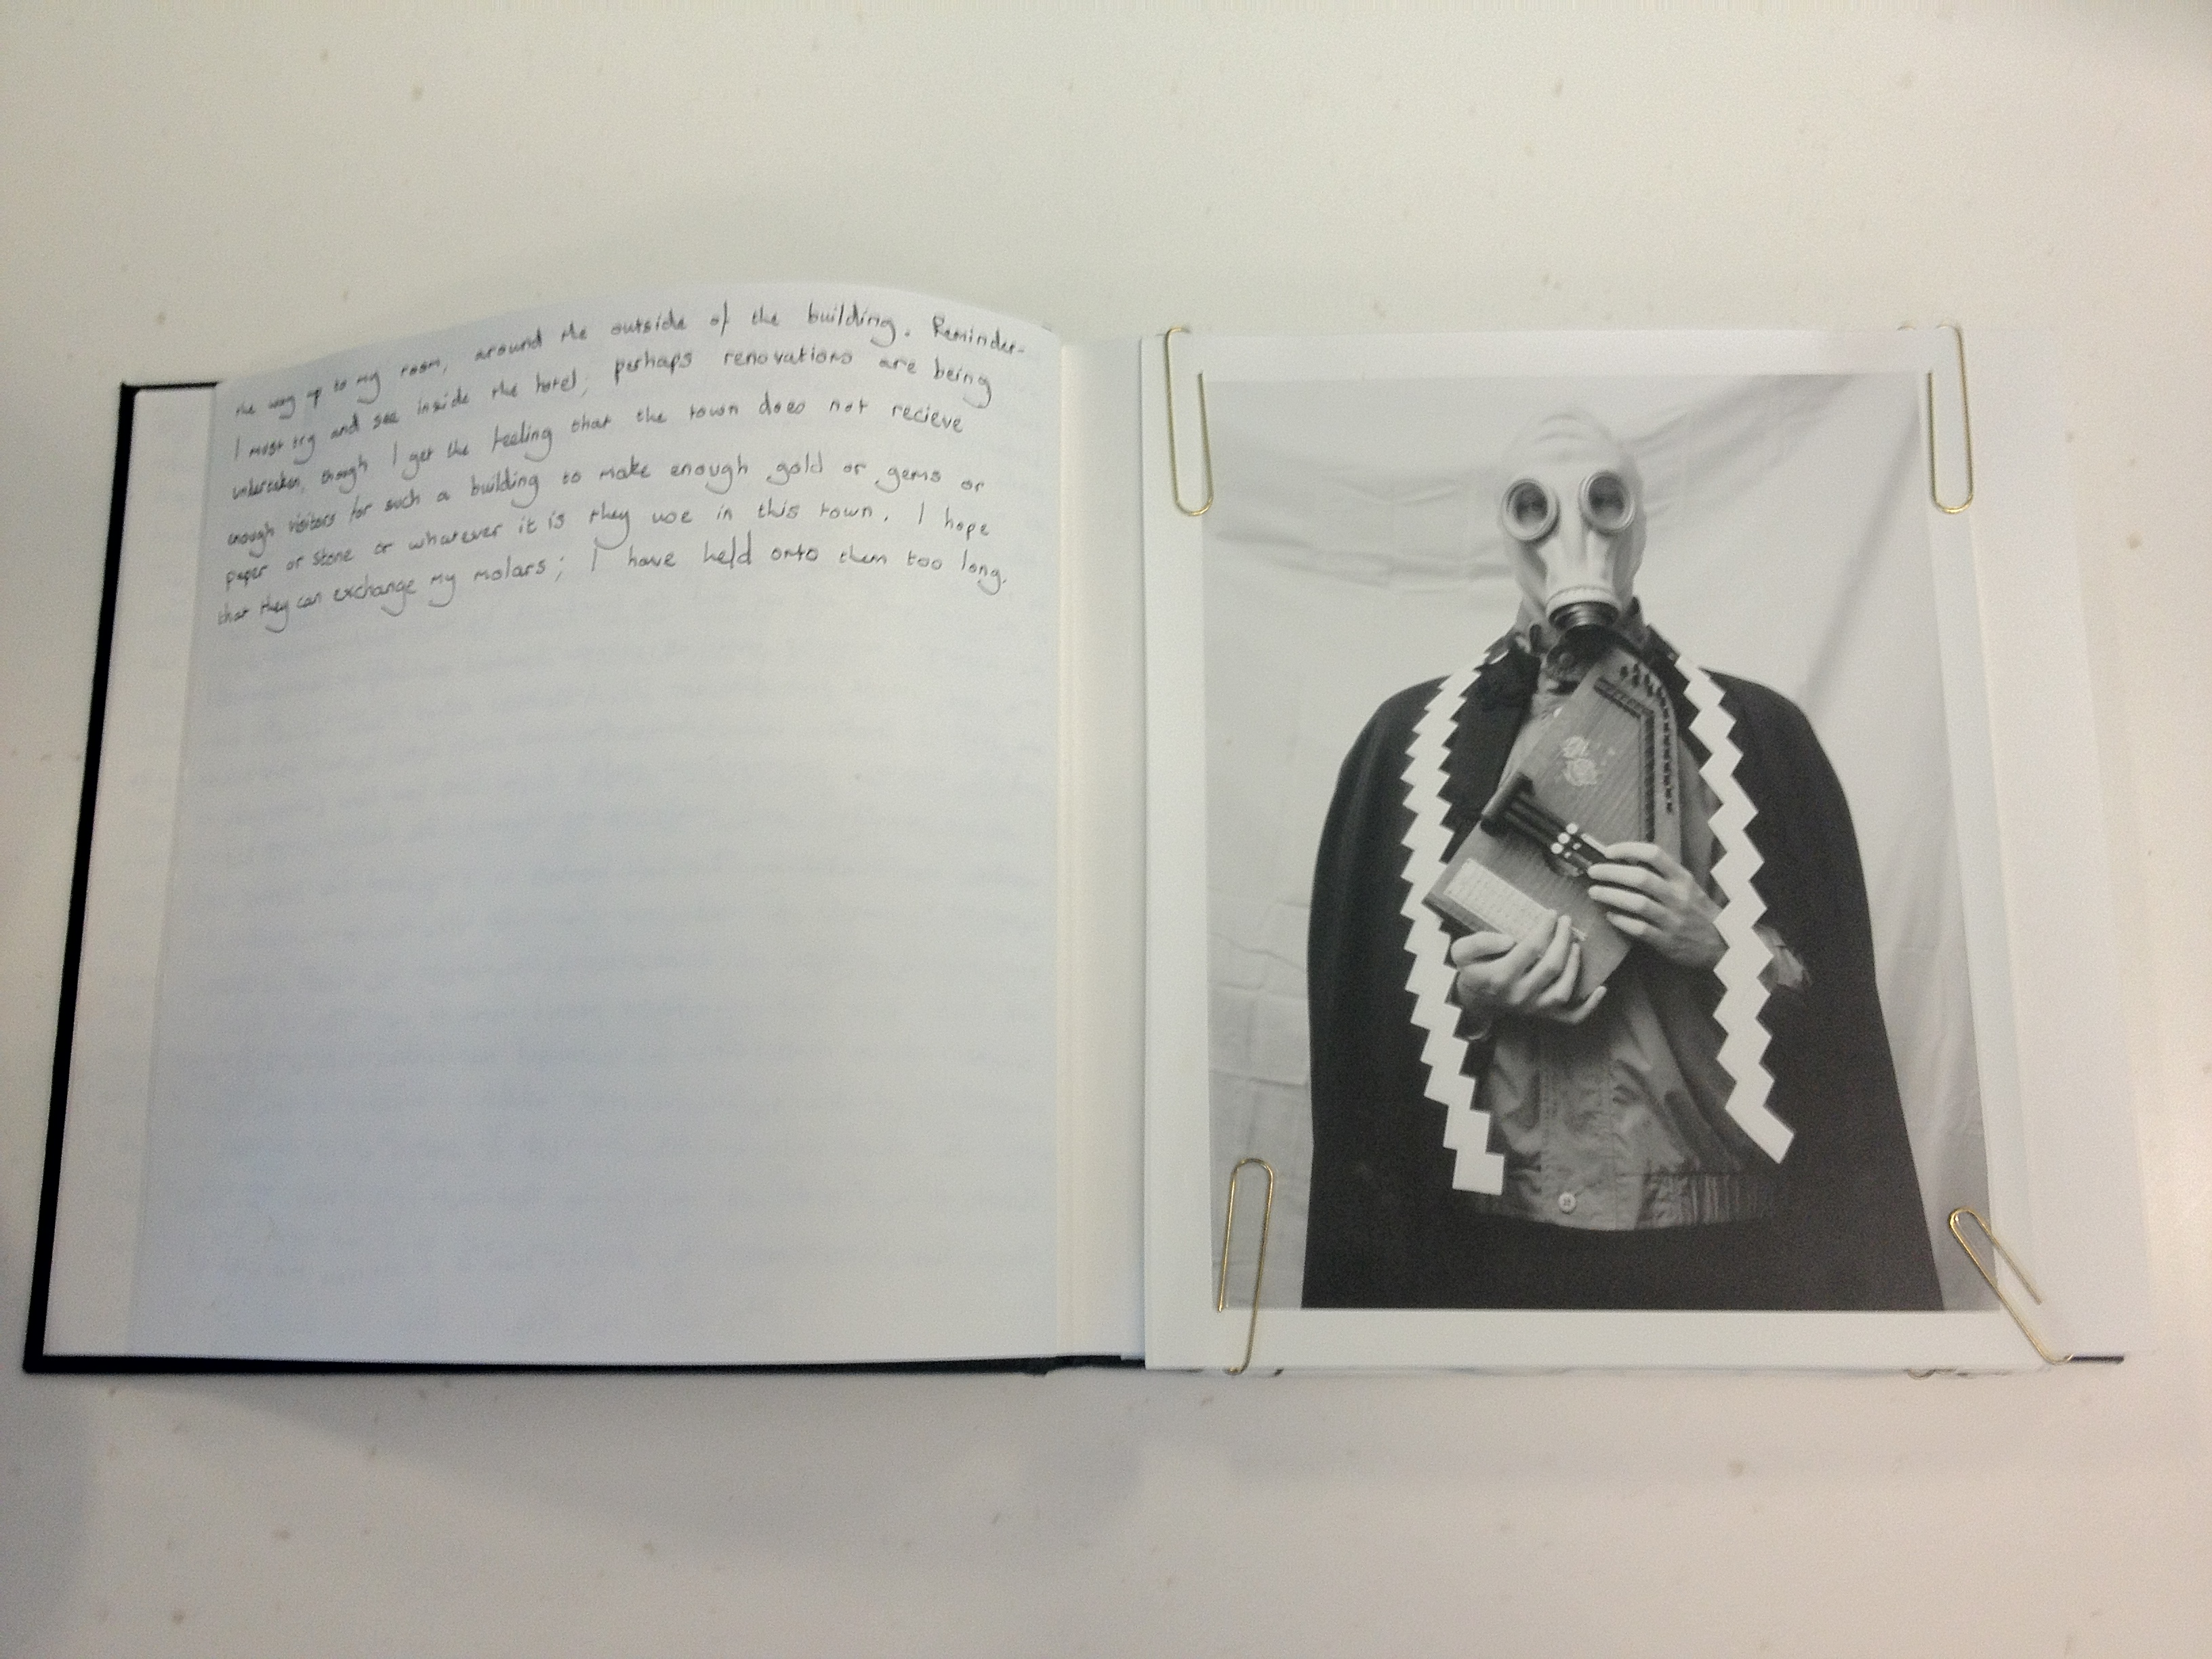 the way up to my room, around the outside of the building. Reminder-
I must try and see inside the hotel, perhaps renovations are being
undertaken, though I get the feeling that the town does not recieve
enough visitors for such a building to make enough gold or gems or
paper or stone or whatever it is they use in this town. I hope
that they can exchange my molars; I have held onto them too long.